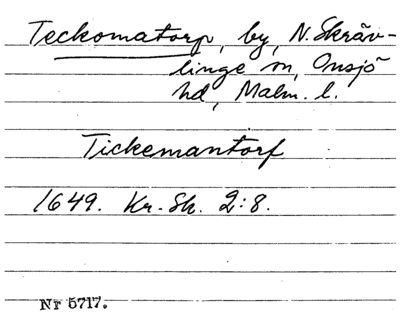 Teckomatorp, by, N. Skräv-
linge sn, Onsjö
hd, Malm. l.
Tickemantorf
1649. Kr. Sk. 2:8.
Nr 5717.